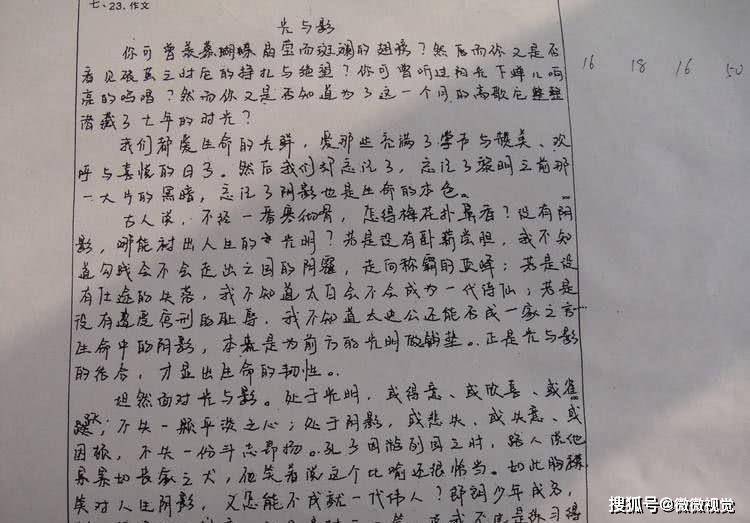 七、23.作文
光与影
你可曾羡慕蝴蝶晶莹而斑斓的翅膀？然后而你又是否
看见破茧之时它的挣扎与绝望？你可曾听过初光下蝉儿响
亮的鸣唱？然而你又是否知道为了这一个月的高歌它整整
潜藏了七年的时光？
我们都爱生命的光鲜，爱那些充满了掌声与赞美、欢
呼与喜悦的日子。然后我们却忘记了，忘记了黎明之前那
一大片的黑暗，忘记了阴影也是生命的本色。
古人说，不经一番寒彻骨，怎得梅花扑鼻香？没有阴
影，哪能衬出人生的光明？若是没有卧薪尝胆，我不知
道勾践会不会走出亡国的阴霾，走向称霸的巅峰；若是没
有仕途的失落，我不知道太白会不会成为一代诗仙；若是
没有遭受宫刑的耻辱，我不知道太史公还能否成一家之言…
生命中的阴影，本就是为前方的光明做铺垫。正是光与影
的结合，才显出生命的韧性。
坦然面对光与影。处于光明，或得意、或欣喜、或雀
跃，不失一颗平淡之心；处于阴影，或悲失、或失意、或
困顿，不失一份斗志昂扬。孔子周游列国之时，路人说他
累累如丧家之犬，他笑着说这个比喻还很恰当。如此胸襟
笑对人生阴影，又怎能不成就一代伟人？郎朗少年成名，
16 18 16 50
搜狐号@微微视觉